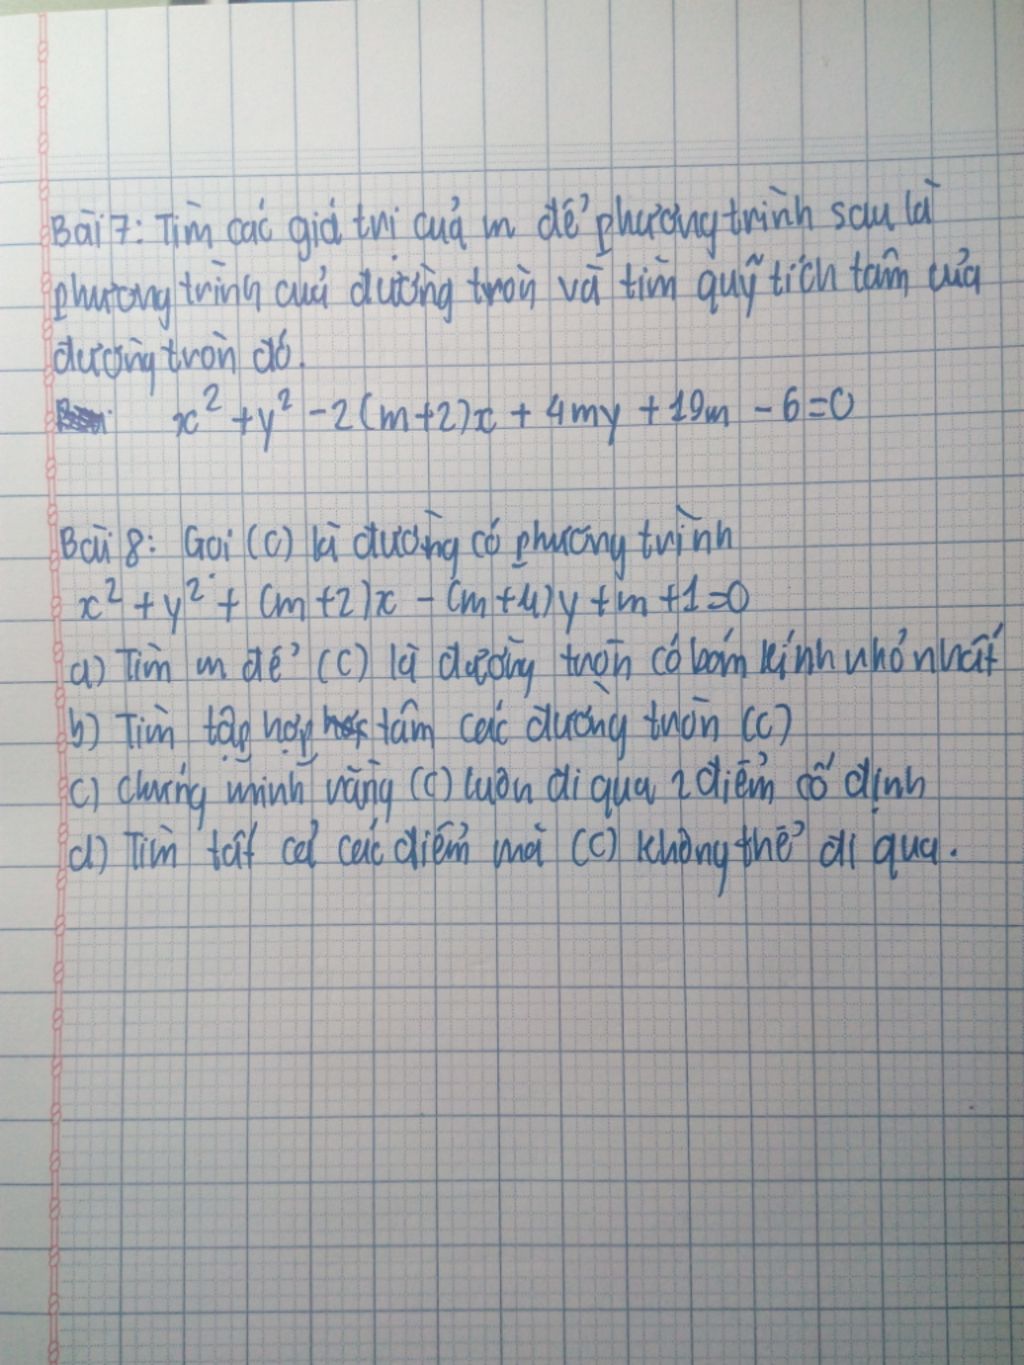 Bài 7: Tìm các giá trị cuả m để phương trình sau là
phương trình cuả đường tròn và tìm quỹ tích tâm của
đường tròn đó.
x² + y² - 2(m+2)x + 4my + 19m - 6 = 0
Bài 8: Gọi (C) là đường có phương trình
x² + y² + (m+2)x - (m+4)y + m + 1 = 0
a) Tìm m để (C) là đường tròn có bán kính nhỏ nhất
b) Tìm tập hợp tâm các đường tròn (C)
c) Chứng minh rằng (C) luôn đi qua 2 điểm cố định
d) Tìm tất cả các điểm mà (C) không thể đi qua.